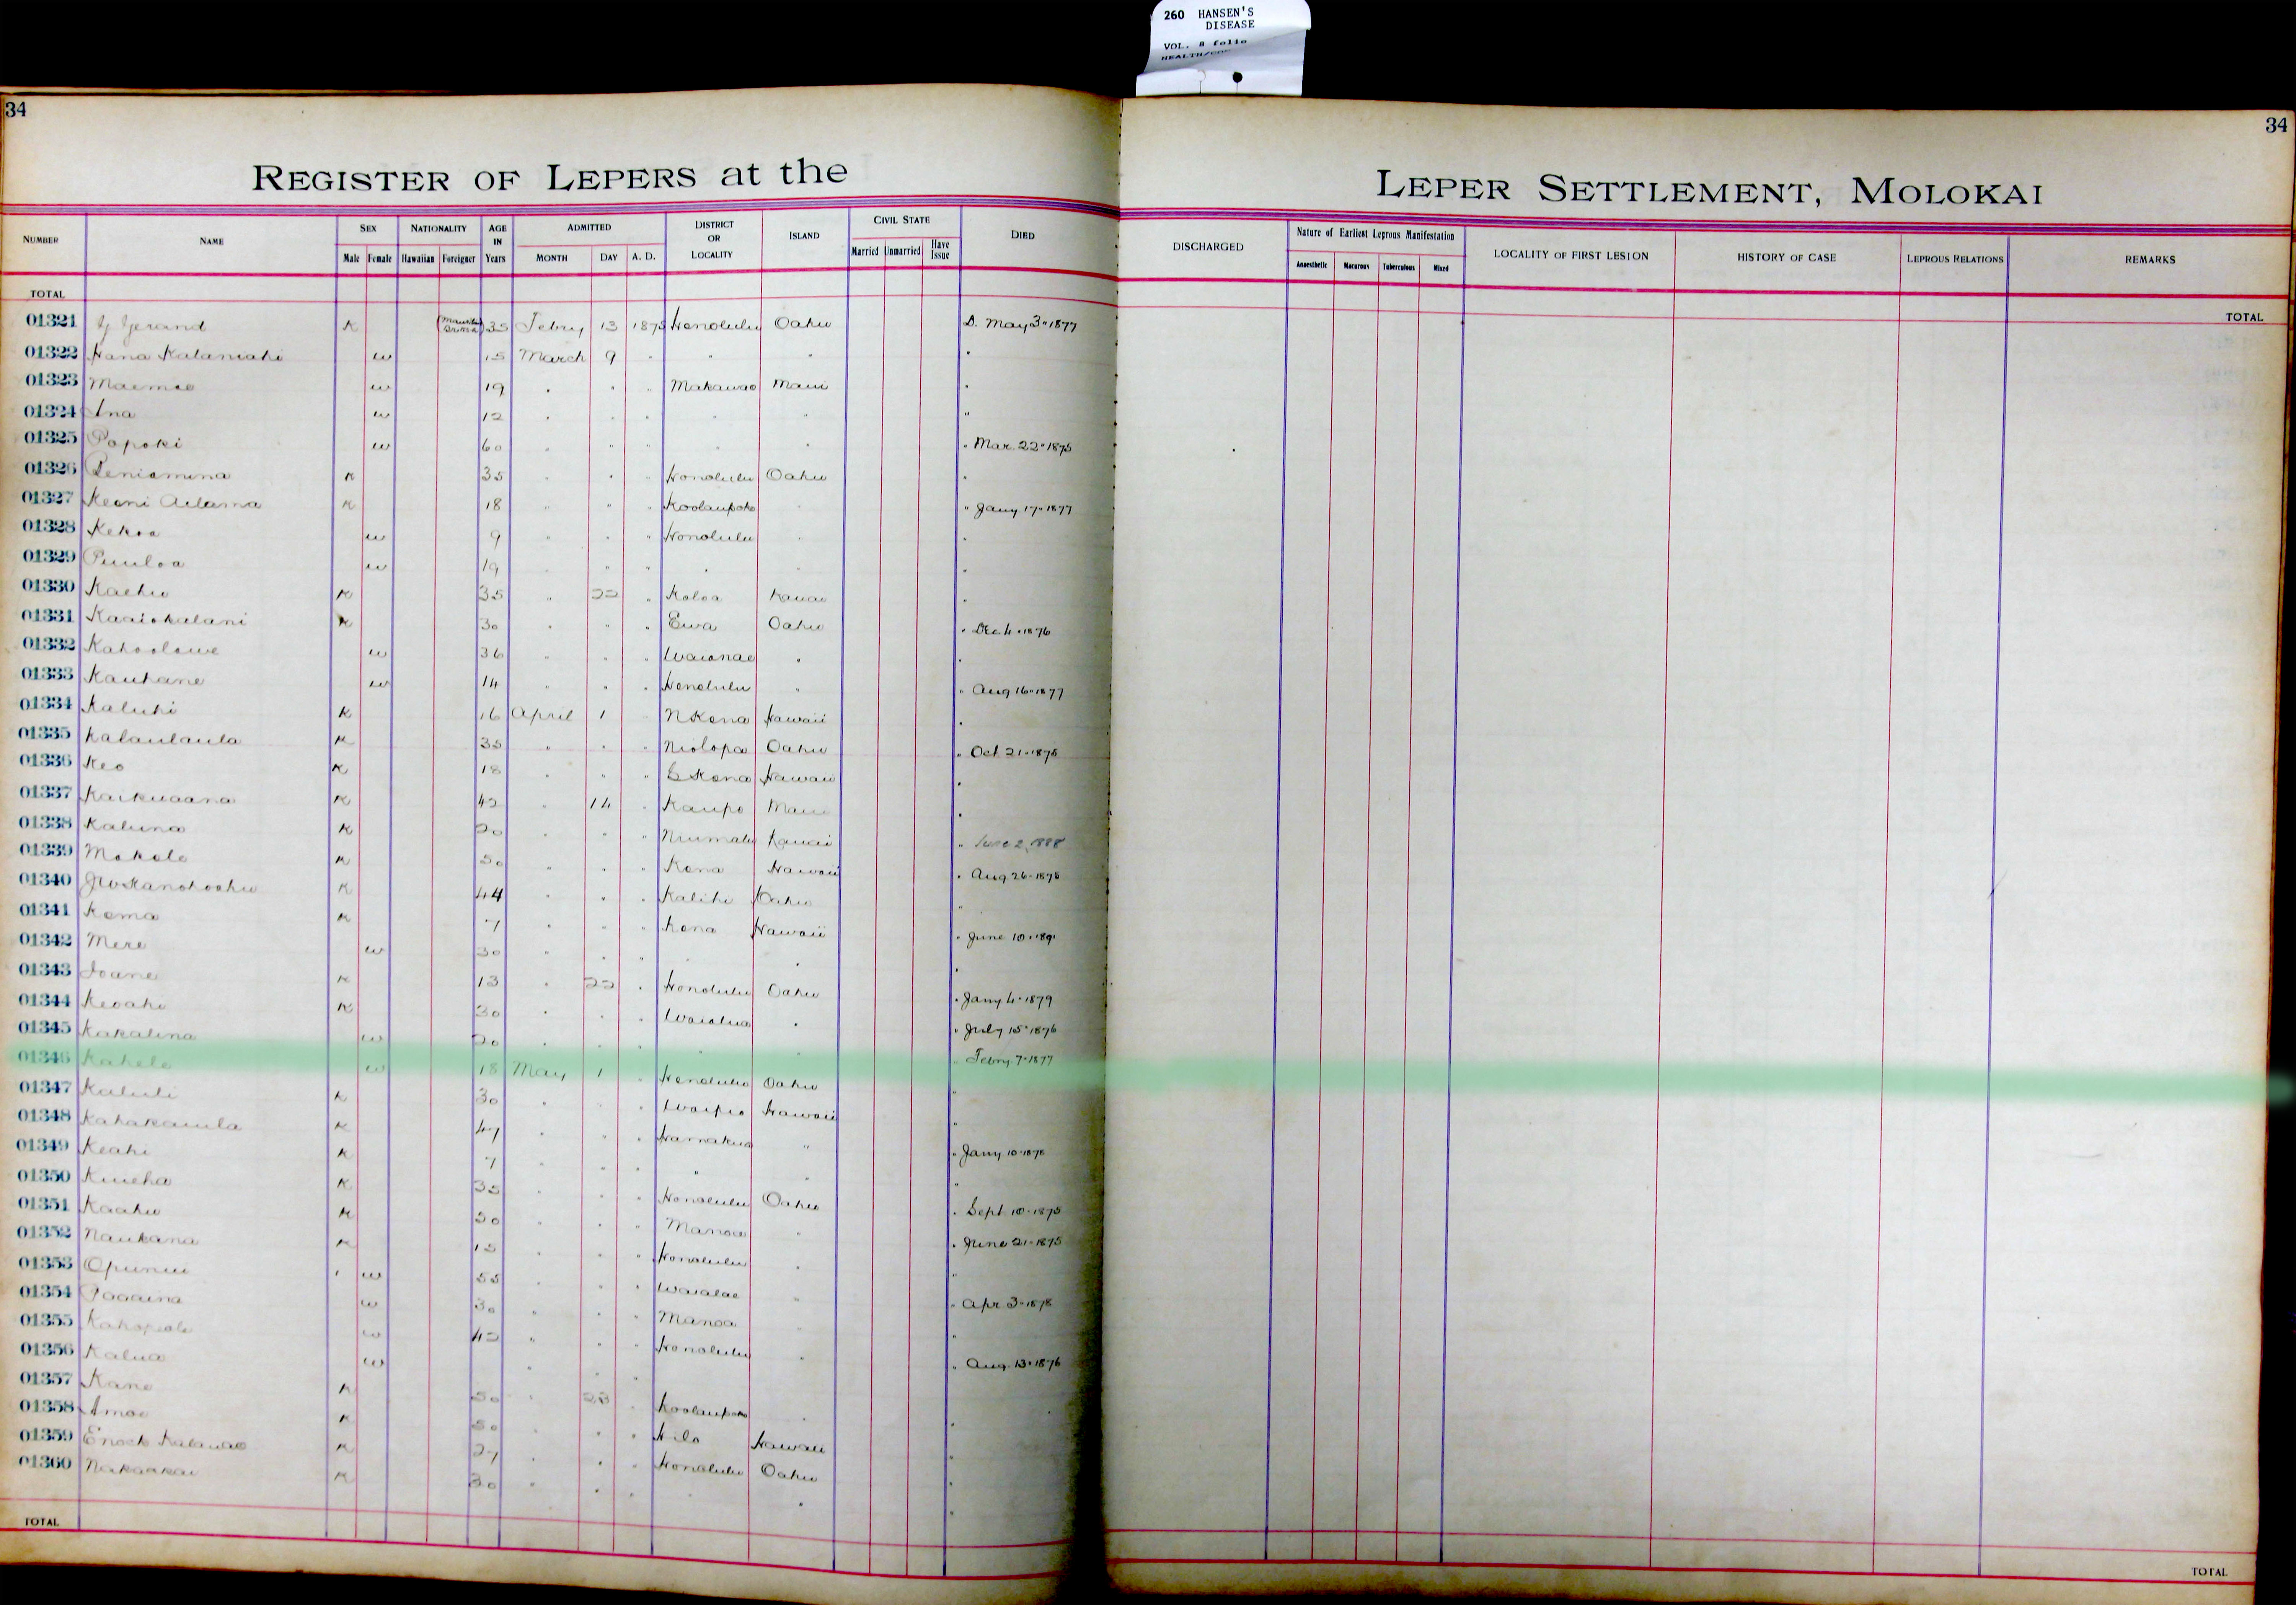 260 HANSEN'S
DISEASE
VOL. 8 folio
34
34
REGISTER OF LEPERS at the
LEPER SETTLEMENT, MOLOKAI
NUMBER NAME SEX NATIONALITY AGE IN Years ADMITTED DISTRICT OR LOCALITY ISLAND CIVIL STATE DIED
Male Female Hawaiian Foreigner MONTH DAY A. D. Married Unmarried Have Issue
DISCHARGED Nature of Earliest Leprous Manifestation LOCALITY OF FIRST LESION HISTORY OF CASE LEPROUS RELATIONS REMARKS
Anaesthetic Macurous Tuberculous Mixed
TOTAL
TOTAL
01321 Gerand K 35 Febry 13 1875 Honolulu Oahu D. May 3 " 1877
01322 Hana Kalaniahi w 15 March 9 " " " "
01323 Maemae w 19 " " " Makawao Maui "
01324 Ana w 12 " " " " " "
01325 Popoki w 60 " " " " " " Mar. 22 " 1875
01326 Peniamina K 35 " " " Honolulu Oahu "
01327 Keoni Adama K 18 " " " Koolaupoko " " Jany 17 " 1877
01328 Kekoa w 9 " " " Honolulu " "
01329 Puuloa w 19 " " " " " "
01330 Kaehu K 35 " 22 " Koloa Kauai "
01331 Kaaiokalani K 30 " " " Ewa Oahu " Dec 4 " 1876
01332 Kahoolawe w 36 " " " Waianae " "
01333 Kauhane w 14 " " " Honolulu " " Aug 16 " 1877
01334 Kaluhi K 16 April 1 " N Kona Hawaii "
01335 Kalaulaula K 35 " " " Niolopa Oahu " Oct 21 " 1878
01336 Keo K 18 " " " S Kona Hawaii "
01337 Kaikuaana K 42 " 14 " Kaupo Maui "
01338 Kaluna K 20 " " " Niumalu Kauai " June 2, 1888
01339 Makole K 50 " " " Kona Hawaii " Aug 26 " 1878
01340 JW Kanohookahu K 44 " " " Kalihi Oahu "
01341 Kema K 7 " " " Kona Hawaii " June 10 " 1891
01342 Mere w 30 " " " " " "
01343 Ioane K 13 " 22 " Honolulu Oahu " Jany 4 " 1879
01344 Keoahi K 30 " " " Waialua " " July 15 " 1876
01345 Kakalina w 20 " " " " " " Febry 7 " 1877
01346 Kahele w 18 May 1 " Honolulu Oahu "
01347 Kaluli K 30 " " " Waipio Hawaii "
01348 Kahakauila K 47 " " " Hamakua " " Jany 10 " 1878
01349 Keahi K 7 " " " " " "
01350 Kuheha K 35 " " " Honolulu Oahu " Sept 10 " 1875
01351 Kaahu K 50 " " " Manoa " " June 21 " 1875
01352 Naukana K 15 " " " Honolulu " "
01353 Opunui w 55 " " " Waialae " " Apr 3 " 1878
01354 Paaaina w 30 " " " Manoa " "
01355 w 42 " " " Honolulu " " Aug 13 " 1876
01356 Kalua w " " "
01357 Kane K 50 " 28 " Koolaupoko " "
01358 Amoe K 50 " " " Hilo Hawaii "
01359 Enoch Kalauao K 27 " " " Honolulu Oahu "
01360 Nakaokai K 30 " " " " " "
TOTAL
TOTAL